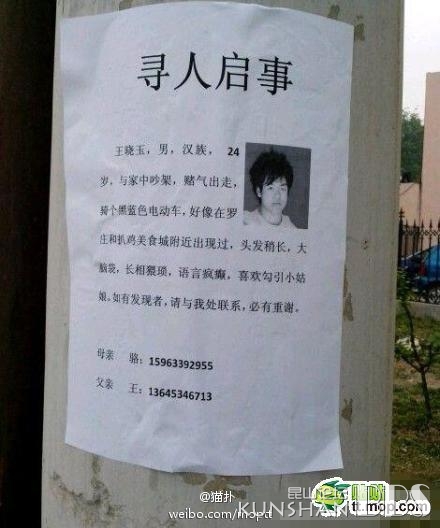 寻人启事
王晓玉，男，汉族，24
岁，与家中吵架，赌气出走，
骑个黑蓝色电动车，好像在罗
庄和扒鸡美食城附近出现过，头发稍长，大
脑袋，长相猥琐，语言疯癫，喜欢勾引小姑
娘。如有发现者，请与我处联系，必有重谢。
母亲 骆：15963392955
父亲 王：13645346713
@猫扑
weibo.com/mopct
昆山论坛
KUNSHAN BBS
tt.mop.com